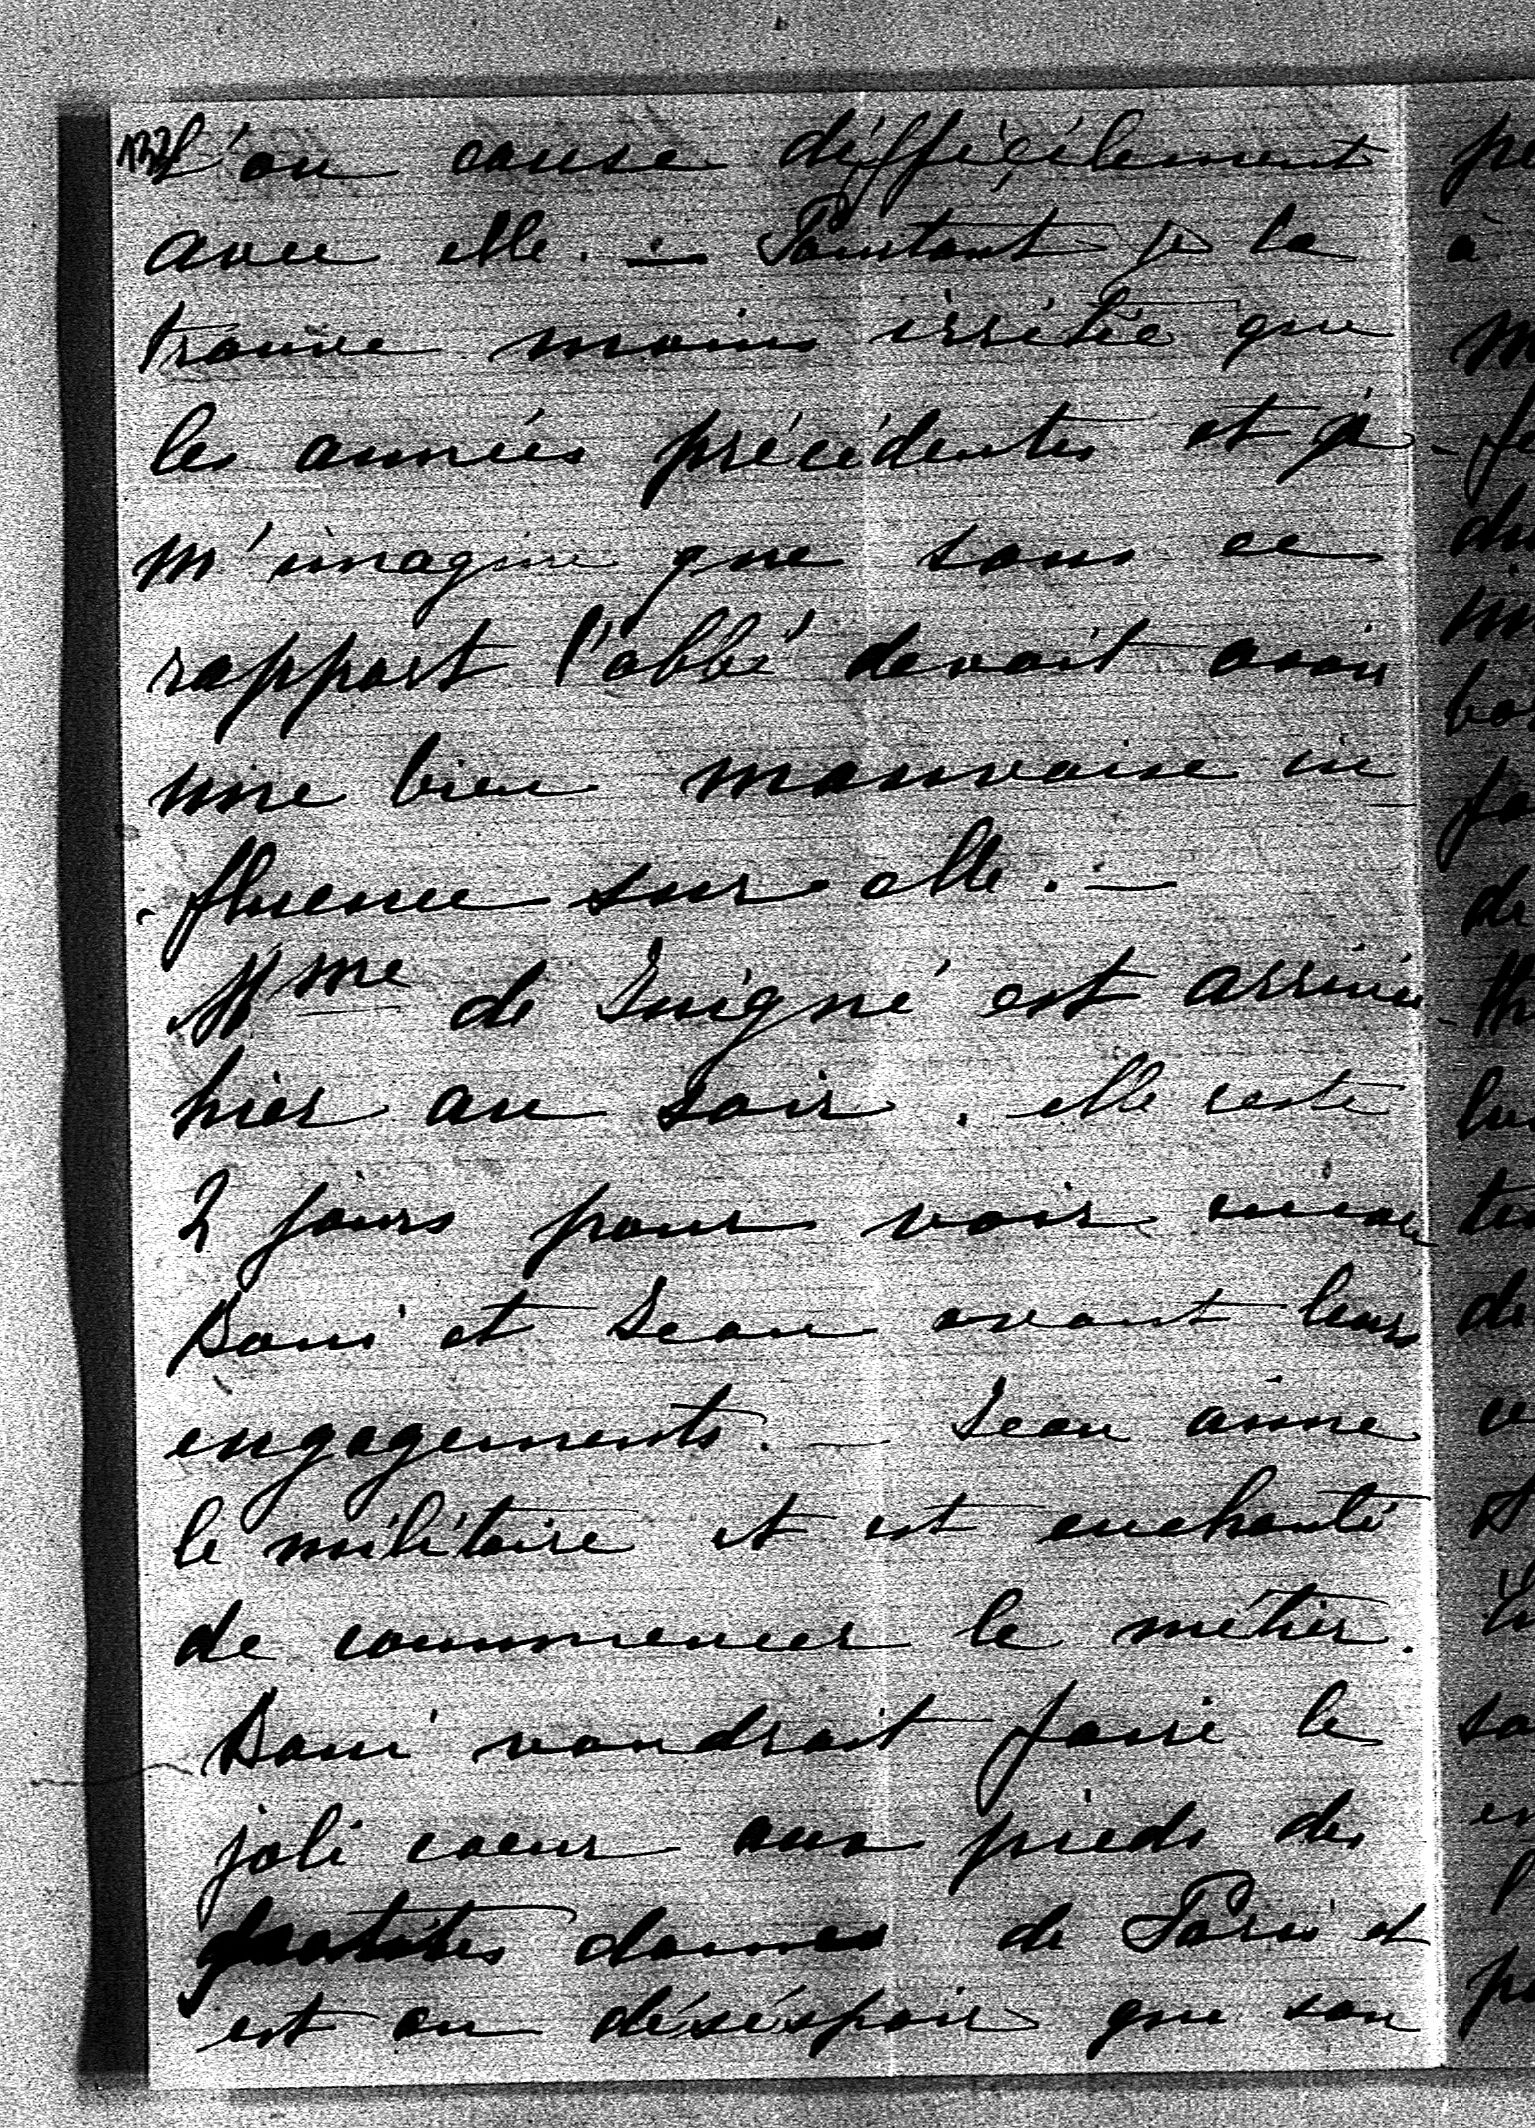 132
l'on cause difficilement
avec elle. — Pourtant je la
trouve moins irritée que
les années précédentes et je
m'imagine que sous ce
rapport l'abbé devait avoir
une bien mauvaise in
-fluence sur elle. —
Mme de Juigné est arrivée
hier au soir. elle reste
2 jours pour voir encore
et Jean avant leurs
engagements. — Jean aime
le militaire et est enchanté
de commencer le métier.
voudrait faire le
joli coeur aux pieds des
petites dames de Paris et
est au déséspoir que son